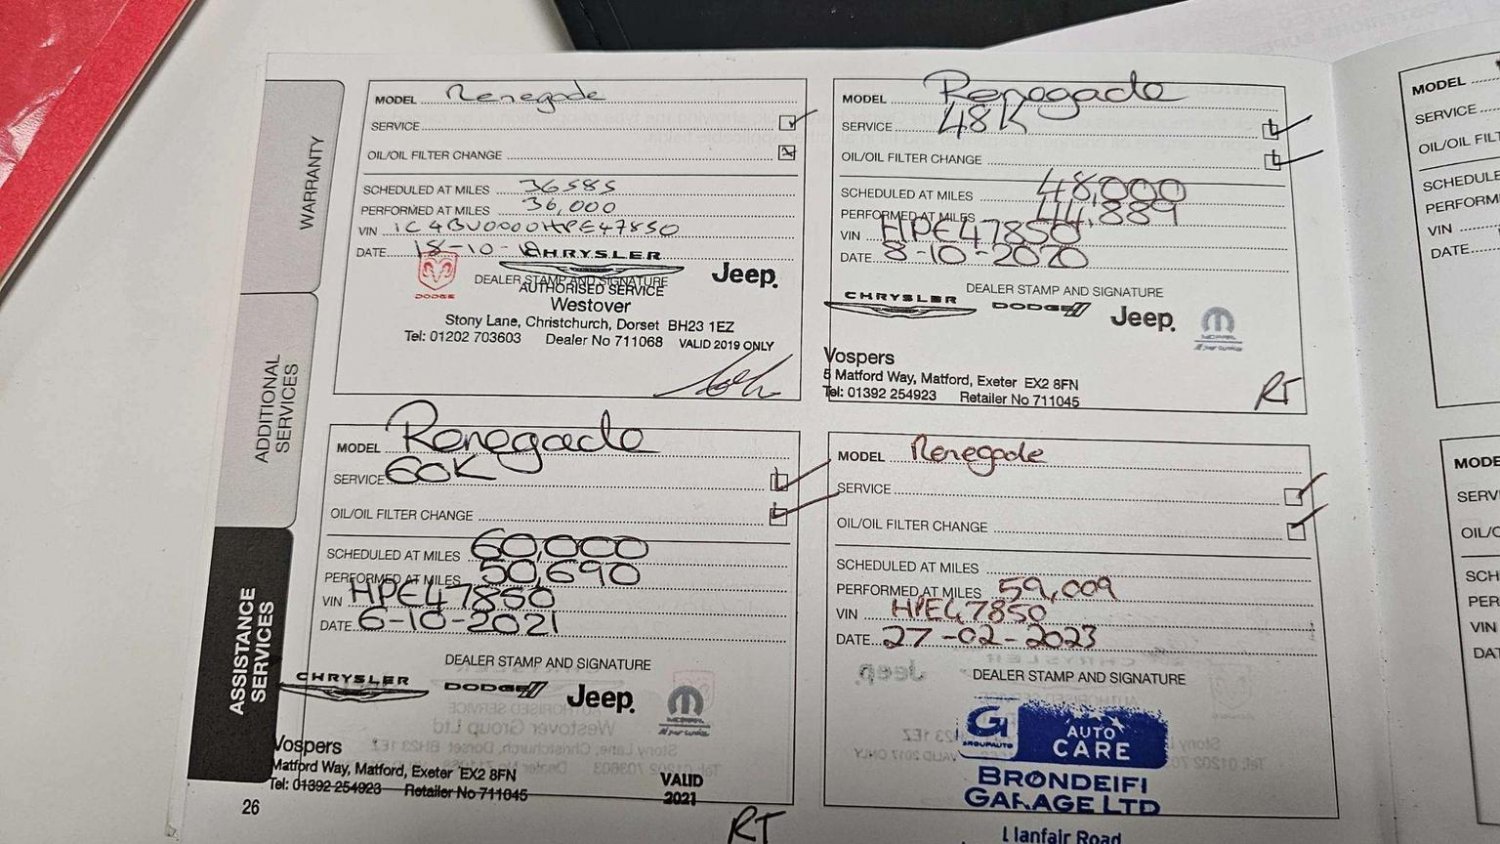 WARRANTY
ADDITIONAL
SERVICES
ASSISTANCE
SERVICES
26
MODEL Renegade
SERVICE
OIL/OIL FILTER CHANGE
SCHEDULED AT MILES 36585
PERFORMED AT MILES 36,000
VIN 1C4BU0000HPE47850
DATE 18-10-19
DODGE
CHRYSLER
Jeep
DEALER STAMP AND SIGNATURE
AUTHORISED SERVICE
Westover
Stony Lane, Christchurch, Dorset BH23 1EZ
Tel: 01202 703603 Dealer No 711068 VALID 2019 ONLY
MODEL Renegade
SERVICE 48K
OIL/OIL FILTER CHANGE
SCHEDULED AT MILES 48,000
PERFORMED AT MILES 44,889
VIN HPE47850
DATE 8-10-2020
DEALER STAMP AND SIGNATURE
CHRYSLER DODGE Jeep
MOPAR
Vospers
5 Matford Way, Matford, Exeter EX2 8FN
Tel: 01392 254923 Retailer No 711045
RT
MODEL Renegade
SERVICE 60K
OIL/OIL FILTER CHANGE
SCHEDULED AT MILES 60,000
PERFORMED AT MILES 50,690
VIN HPE47850
DATE 6-10-2021
DEALER STAMP AND SIGNATURE
CHRYSLER DODGE Jeep
MOPAR
Vospers
Matford Way, Matford, Exeter EX2 8FN
Tel: 01392 254923 Retailer No 711045
VALID
2021
RT
MODEL Renegade
SERVICE
OIL/OIL FILTER CHANGE
SCHEDULED AT MILES
PERFORMED AT MILES 59,009
VIN HPE47850
DATE 27-02-2023
DEALER STAMP AND SIGNATURE
G
GROUPAUTO
AUTO
CARE
BRONDEIFI
GARAGE LTD
Llanfair Road
MODEL
SERVICE
OIL/OIL FILT
SCHEDULE
PERFORM
VIN
DATE
MODE
SERV
OIL/O
SCH
PER
VIN
DAT